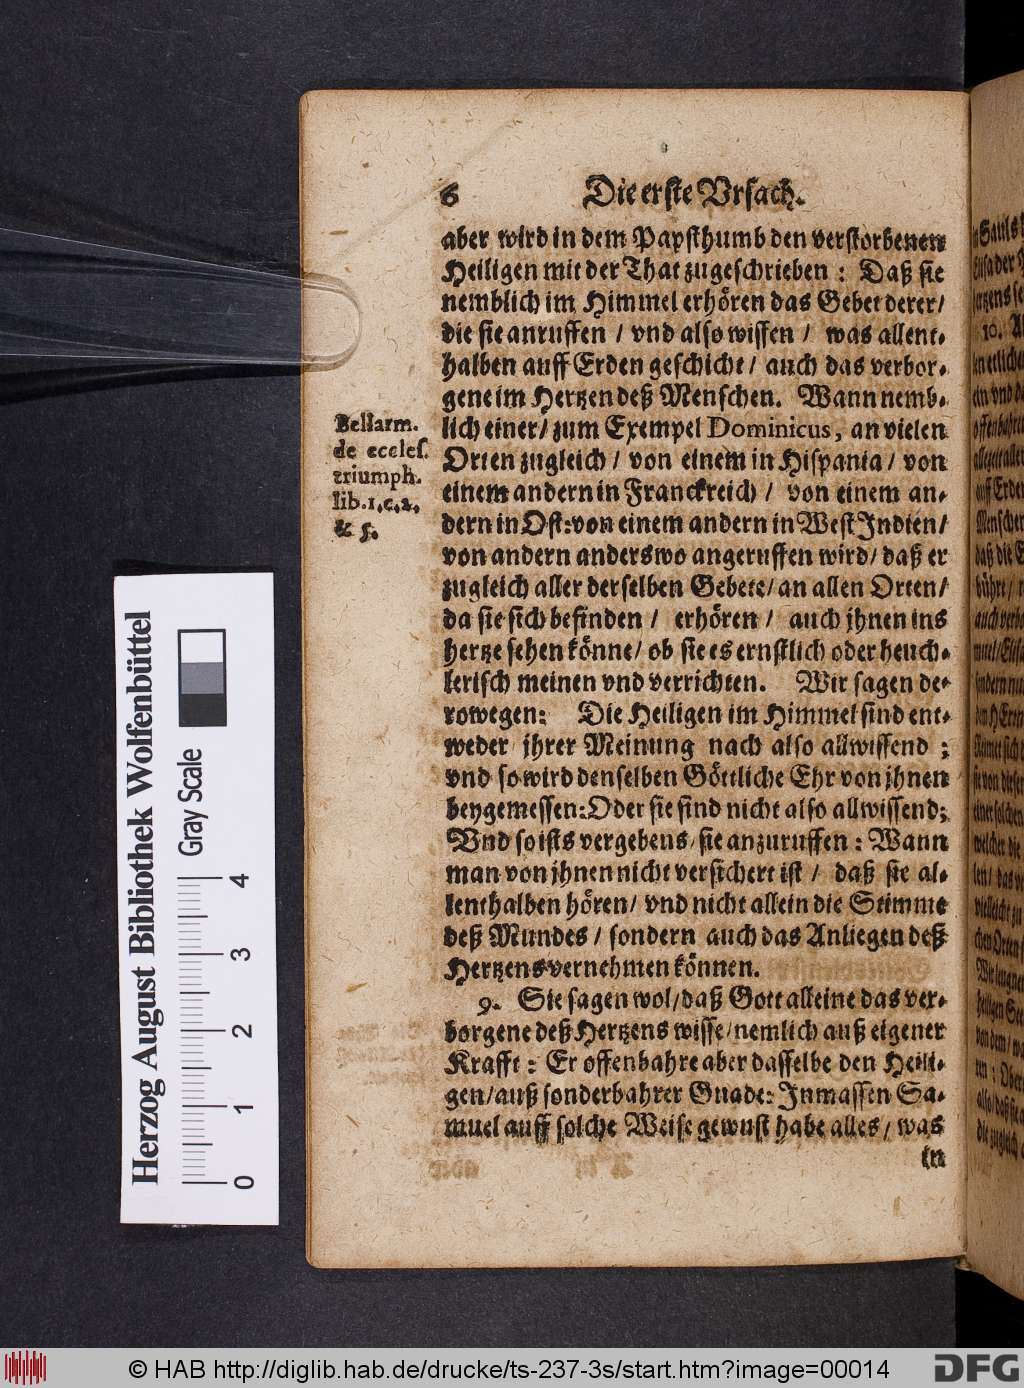 6 Die erste Vrsach.
aber wird in dem Papsthumb den verstorbenen
Heiligen mit der That zugeschrieben : Daß sie
nemblich im Himmel erhören das Gebet derer/
die sie anruffen / vnd also wissen / was allent-
halben auff Erden geschicht / auch das verbor-
gene im Hertzen deß Menschen. Wann nemb-
lich einer/ zum Exempel Dominicus, an vielen
Orten zugleich / von einem in Hispania / von
einem andern in Franckreich / von einem an-
dern in Ost: von einem andern in West Indien/
von andern anderswo angeruffen wird/ daß er
zugleich aller derselben Gebete/ an allen Orten/
da sie sich befinden / erhören / auch jhnen ins
hertze sehen könne/ ob sie es ernstlich oder heuch-
lerisch meinen vnd verrichten. Wir sagen de-
rowegen: Die Heiligen im Himmel sind ent-
weder jhrer Meinung nach also allwissend ;
vnd so wird denselben Göttliche Ehr von jhnen
beygemessen: Oder sie sind nicht also allwissend;
Vnd so ists vergebens/ sie anzuruffen : Wann
man von jhnen nicht versichert ist / daß sie al-
lenthalben hören/ vnd nicht allein die Stimme
deß Mundes / sondern auch das Anliegen deß
Hertzens vernehmen können.
9. Sie sagen wol/ daß Gott alleine das ver-
borgene deß Hertzens wisse/ nemlich auß eigener
Krafft : Er offenbahre aber dasselbe den Heili-
gen/ auß sonderbahrer Gnade: Inmassen Sa-
muel auff solche Weise gewust habe alles / was
in
Bellarm.
de eccles.
triumph.
lib.1.c.2.
& 5.
Herzog August Bibliothek Wolfenbüttel
Gray Scale
0 1 2 3 4
© HAB http://diglib.hab.de/drucke/ts-237-3s/start.htm?image=00014
DFG